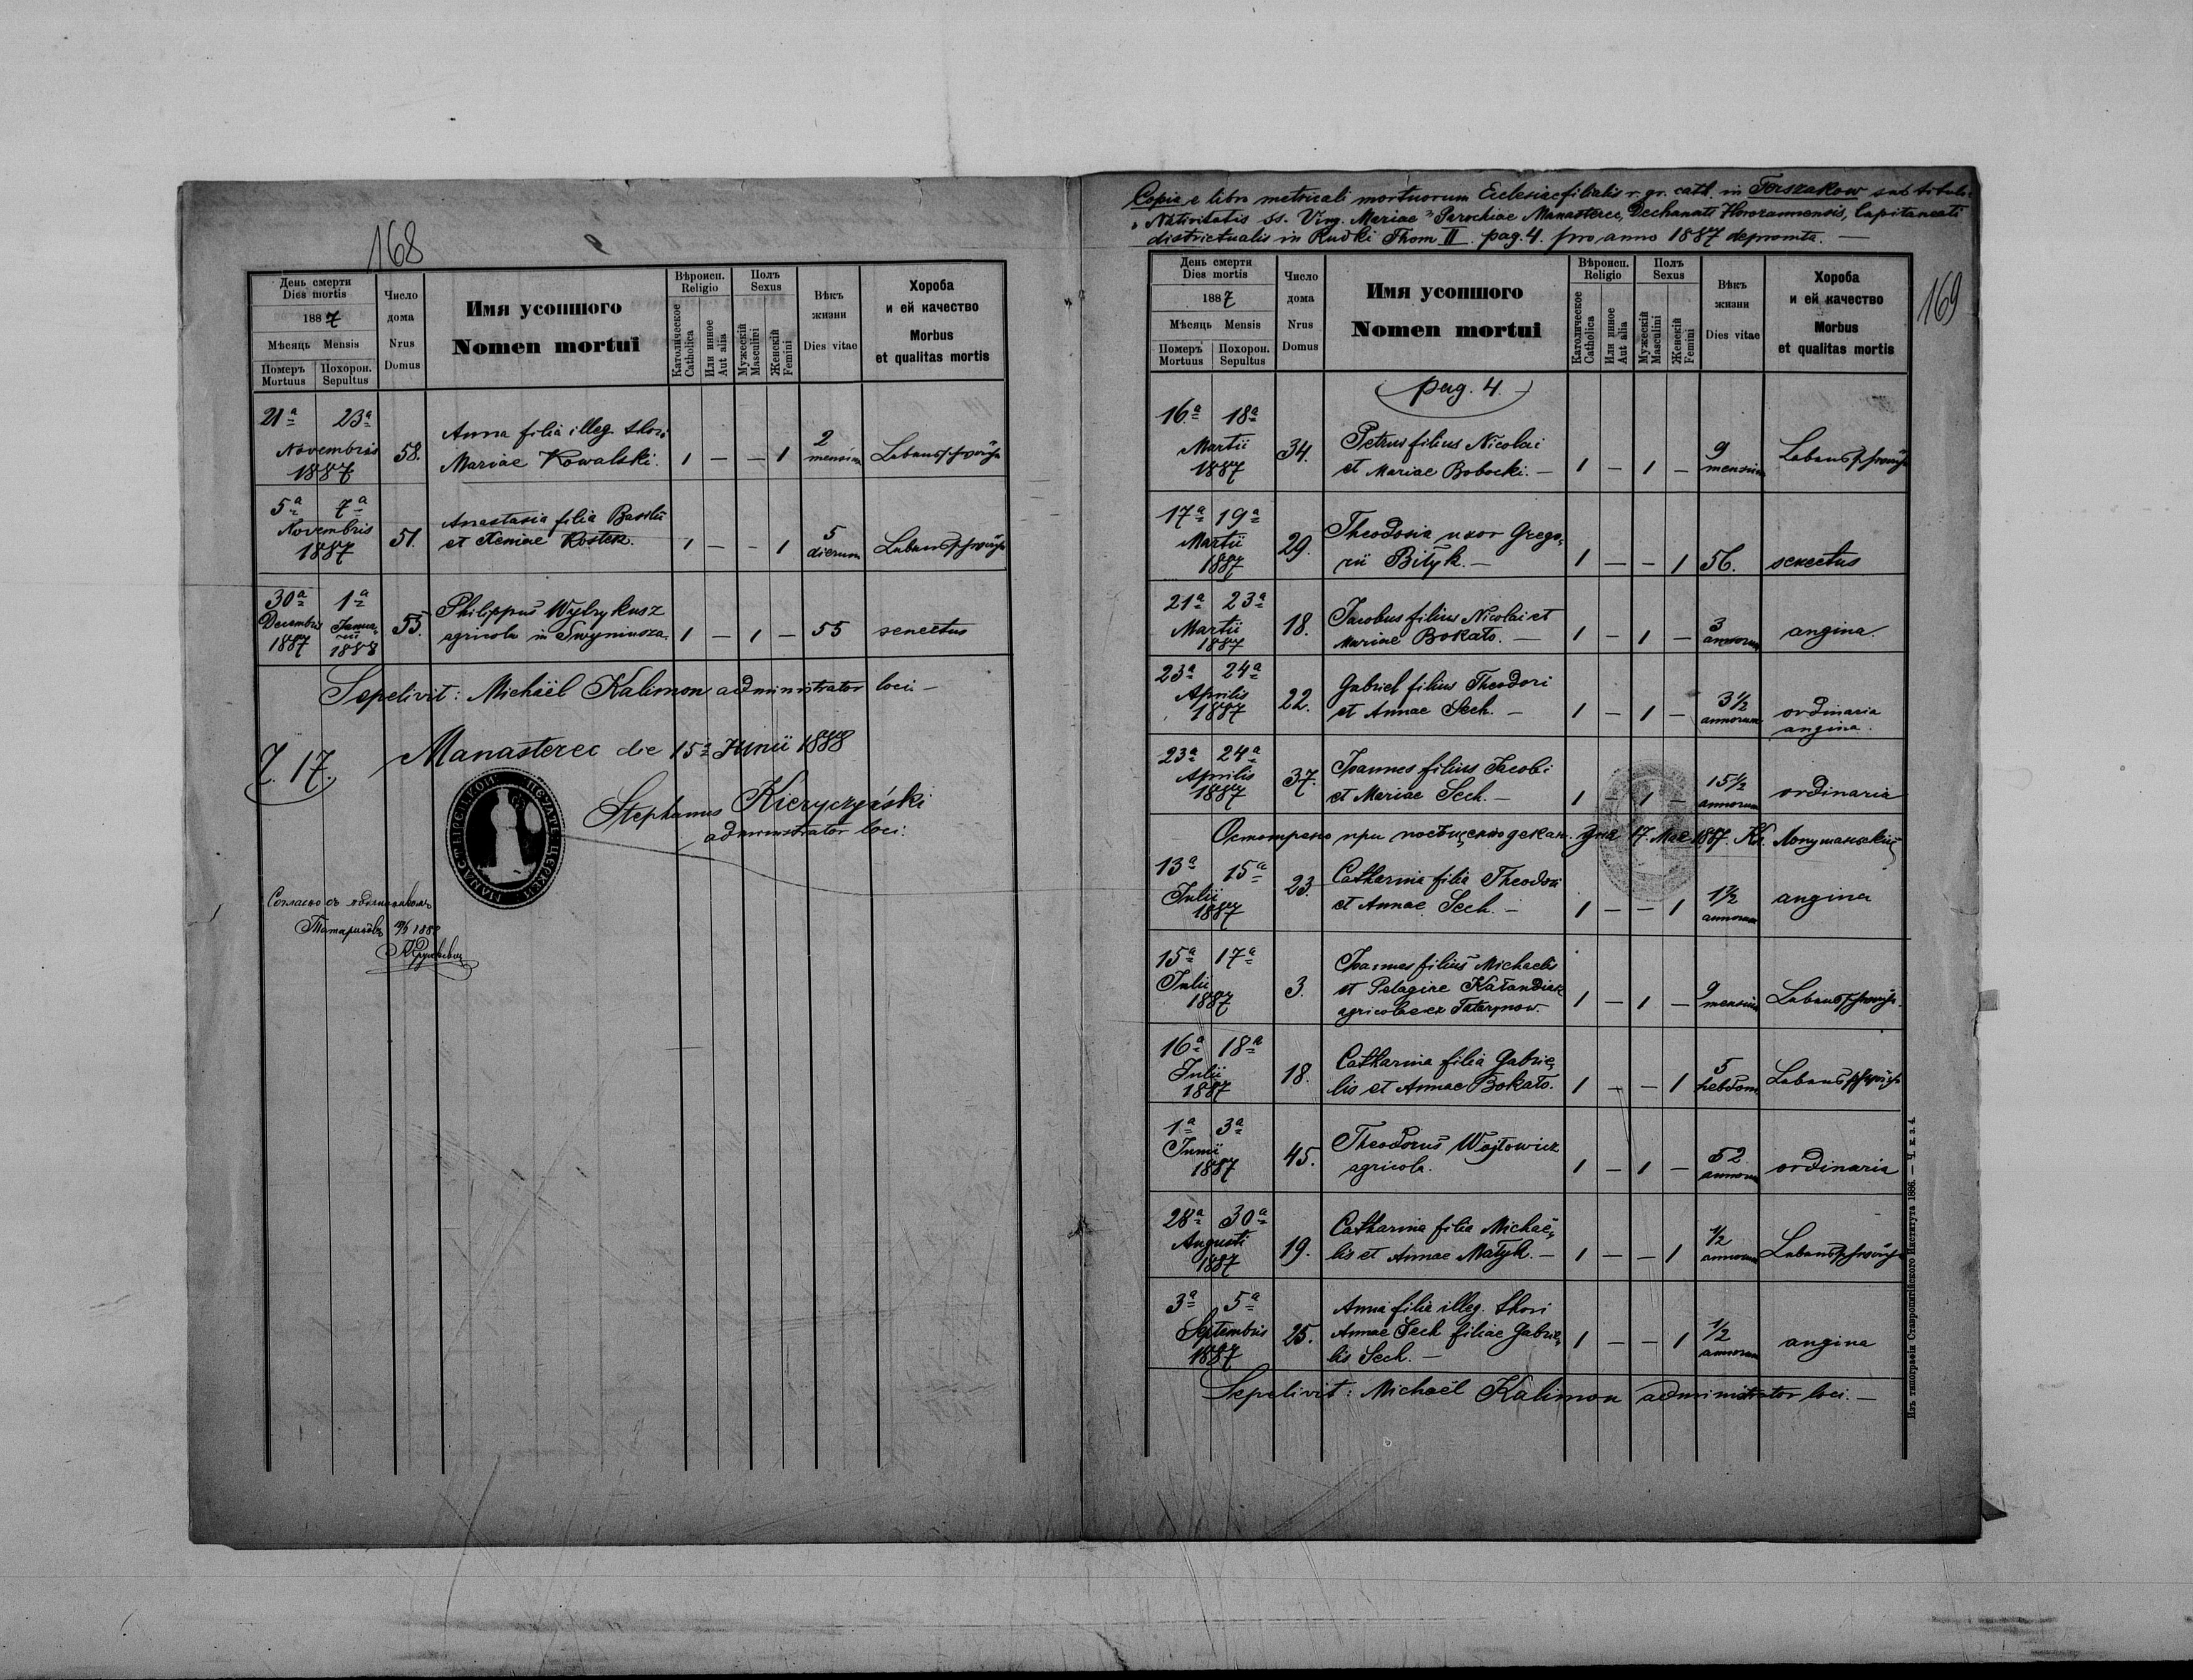 168
День смерти
Dies mortis
1887
Мѣсяць Mensis
Померъ Mortuus
Похорон. Sepultus
Число дома
Nrus Domus
Имя усопшого
Nomen mortui
Вѣроисп. Religio
Католическое Catholica
Или инное Aut alia
Полъ Sexus
Мужескій Masculini
Женскій Femini
Вѣкъ жизни
Dies vitae
Хороба и ей качество
Morbus et qualitas mortis
21ª 23ª
Novembris
1887
58.
Anna filia illeg. thori
Mariae Kowalski.
1 — — 1
2
mensium
Lebensschwäche
5ª 7ª
Novembris
1887
51.
Anastasia filia Basilii
et Xeniae Kostek.
1 — — 1
5
dierum
Lebensschwäche
30ª 1ª
Decembris Januarii
1887 1888
55.
Philippus Wytrykusz
agricola in
1 — 1 —
55
senectus
Sepelivit: Michaël Kalimon administrator loci —
Manasterec die 15ª Junii 1888
17.
Stephanus Kieryczyński
administrator loci.
Согласно съ
1888
Copia e libro metricali mortuorum Ecclesiae filialis r. gr. cath. in Terszakow sub titulo
"Nativitatis Ss. Virg. Mariae" Parochiae Manasterec, Dechanati Horozannensis, Capitaneati
districtualis in Rudki Thom II. pag. 4. pro anno 1887 depromta. —
169
День смерти
Dies mortis
1887
Мѣсяць Mensis
Померъ Mortuus
Похорон. Sepultus
Число дома
Nrus Domus
Имя усопшого
Nomen mortui
Вѣроисп. Religio
Католическое Catholica
Или инное Aut alia
Полъ Sexus
Мужескій Masculini
Женскій Femini
Вѣкъ жизни
Dies vitae
Хороба и ей качество
Morbus et qualitas mortis
pag. 4.
16ª 18ª
Martii
1887
34.
Petrus filius Nicolai
et Mariae Bobocki. —
1 — 1 —
9
mensium
Lebensschwäche
17ª 19ª
Martii
1887
29.
Theodosia uxor Grego-
rii Bityk. —
1 — — 1
56.
senectus
21ª 23ª
Martii
1887
18.
Jacobus filius Nicolai et
Mariae Bokało. —
1 — 1 —
3
annorum
angina.
23ª 24ª
Aprilis
1887
22.
Gabriel filius Theodori
et Annae Sech. —
1 — 1 —
3 1/2
annorum
ordinaria
angina.
23ª 24ª
Aprilis
1887
37.
Joannes filius Jacobi
et Mariae Sech. —
1 — 1 —
15 1/2
annorum
ordinaria
Осмотрено при декан. дня 17. Мая 1887.
13ª 15ª
Julii
1887
23.
Catharina filia Theodori
et Annae Sech. —
1 — — 1
1 1/2
annorum
angina
15ª 17ª
Julii
1887
3.
Joannes filius Michaelis
et Pelagiae Kałandiak
agricolae ex Tatarynow.
1 — 1 —
9
mensium
Lebensschwäche
16ª 18ª
Julii
1887
18.
Catharina filia Gabrie-
lis et Annae Bokało.
1 — — 1
5
hebdom.
Lebensschwäche
1ª 3ª
Junii
1887
45.
Theodorus Wojtowicz
agricola.
1 — 1 —
52
annorum
ordinaria
28ª 30ª
Augusti
1887
19.
Catharina filia Michaë-
lis et Annae Matyk. —
1 — — 1
1/2
annorum
Lebensschwäche
3ª 5ª
Septembris
1887
25.
Anna filia illeg. thori
Annae Sech filiae Gabrie-
lis Sech. —
1 — — 1
1/2
annorum
angina
Sepelivit: Michaël Kalimon administrator loci. —
Изъ типографіи Ставропигійского Института 1886. — Ч. к. з. 4.